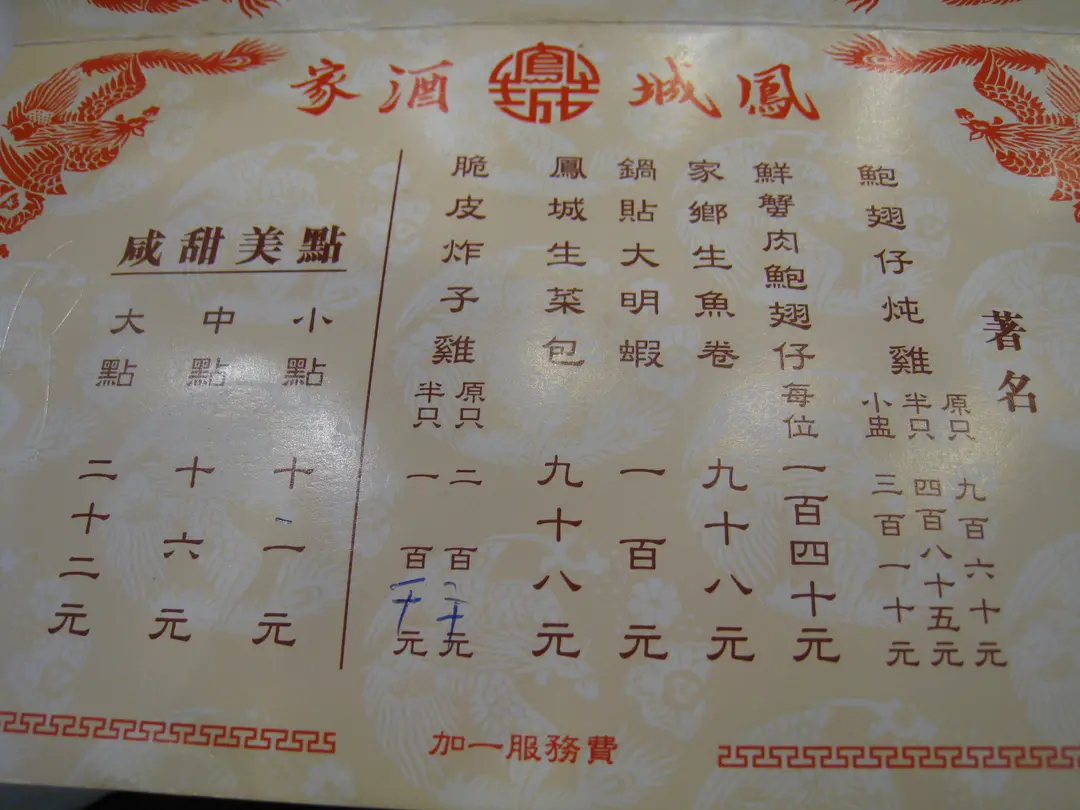 鳳城酒家
著名
鮑翅仔炖雞
原只 九百六十元
半只 四百八十五元
小盅 三百一十元
鮮蟹肉鮑翅仔每位 一百四十元
家鄉生魚卷 九十八元
鍋貼大明蝦 一百元
鳳城生菜包 九十八元
脆皮炸子雞
原只 二百元
半只 一百元
咸甜美點
小點 十一元
中點 十六元
大點 二十二元
加一服務費